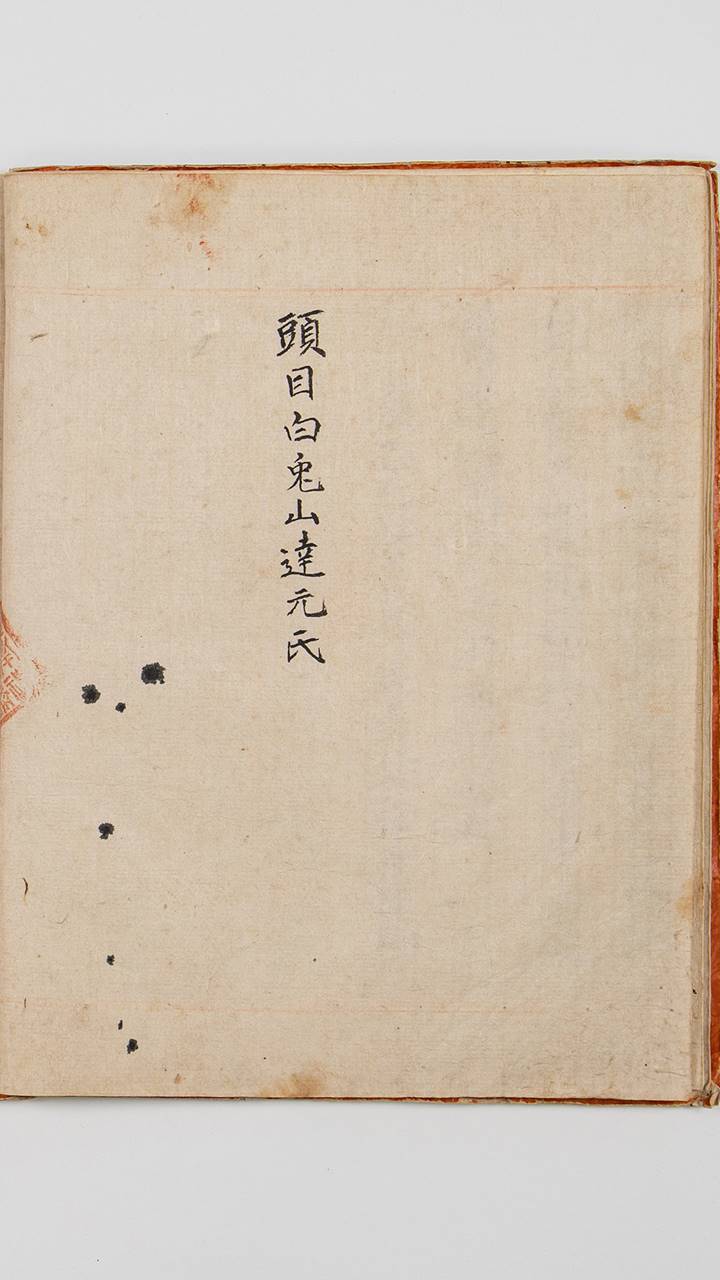 頭目白兎山達元氏